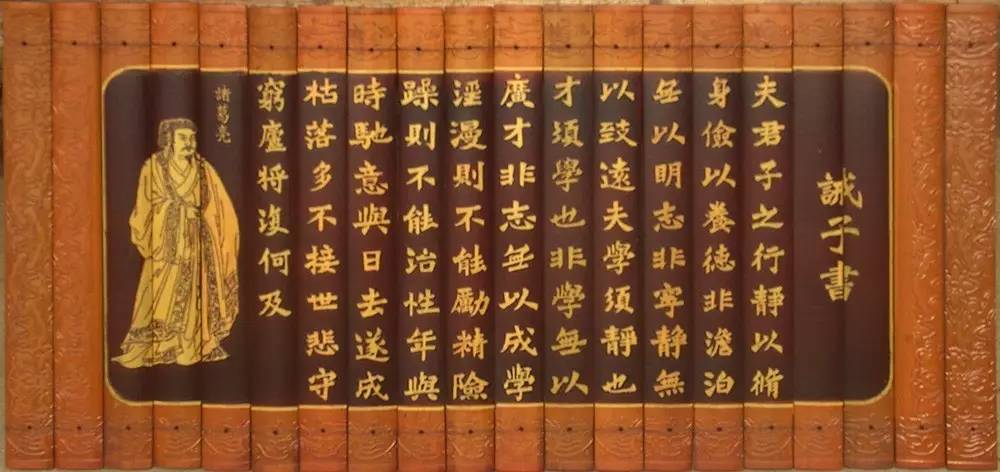 誡子書
夫君子之行靜以脩
身儉以養徳非澹泊
無以明志非寧靜無
以致遠夫學須靜也
才須學也非學無以
廣才非志無以成學
淫漫則不能勵精險
躁則不能治性年與
時馳意與日去遂成
枯落多不接世悲守
窮廬將復何及
諸葛亮